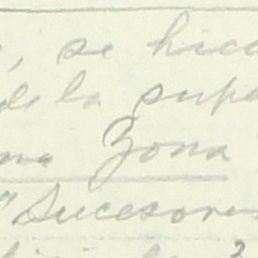 , se hico
de la supe
una Zona
"Sucesores